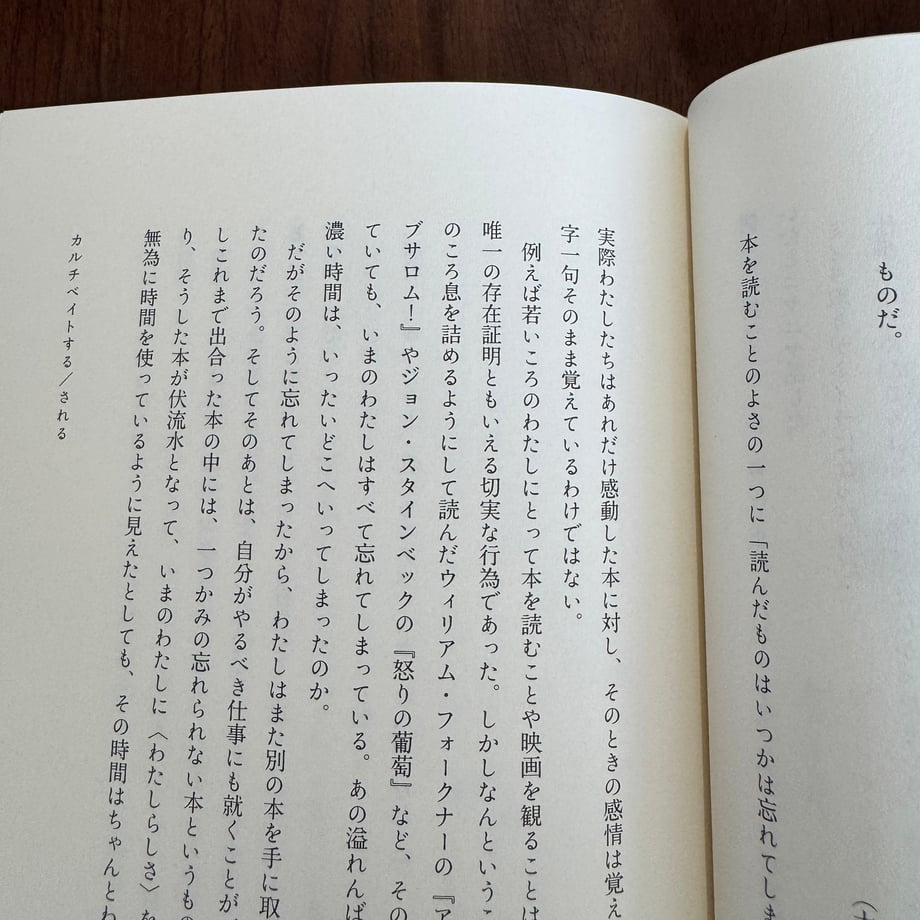 ものだ。
本を読むことのよさの一つに「読んだものはいつかは忘れてしま
実際わたしたちはあれだけ感動した本に対し、そのときの感情は覚え
字一句そのまま覚えているわけではない。
例えば若いころのわたしにとって本を読むことや映画を観ることは
唯一の存在証明ともいえる切実な行為であった。しかしなんというこ
のころ息を詰めるようにして読んだウィリアム・フォークナーの『ア
ブサロム！』やジョン・スタインベックの『怒りの葡萄』など、その
ていても、いまのわたしはすべて忘れてしまっている。あの溢れんば
濃い時間は、いったいどこへいってしまったのか。
だがそのように忘れてしまったから、わたしはまた別の本を手に取
たのだろう。そしてそのあとは、自分がやるべき仕事にも就くことが
しこれまで出合った本の中には、一つかみの忘れられない本というもの
り、そうした本が伏流水となって、いまのわたしに〈わたしらしさ〉を
無為に時間を使っているように見えたとしても、その時間はちゃんとわ
カルチベイトする／される